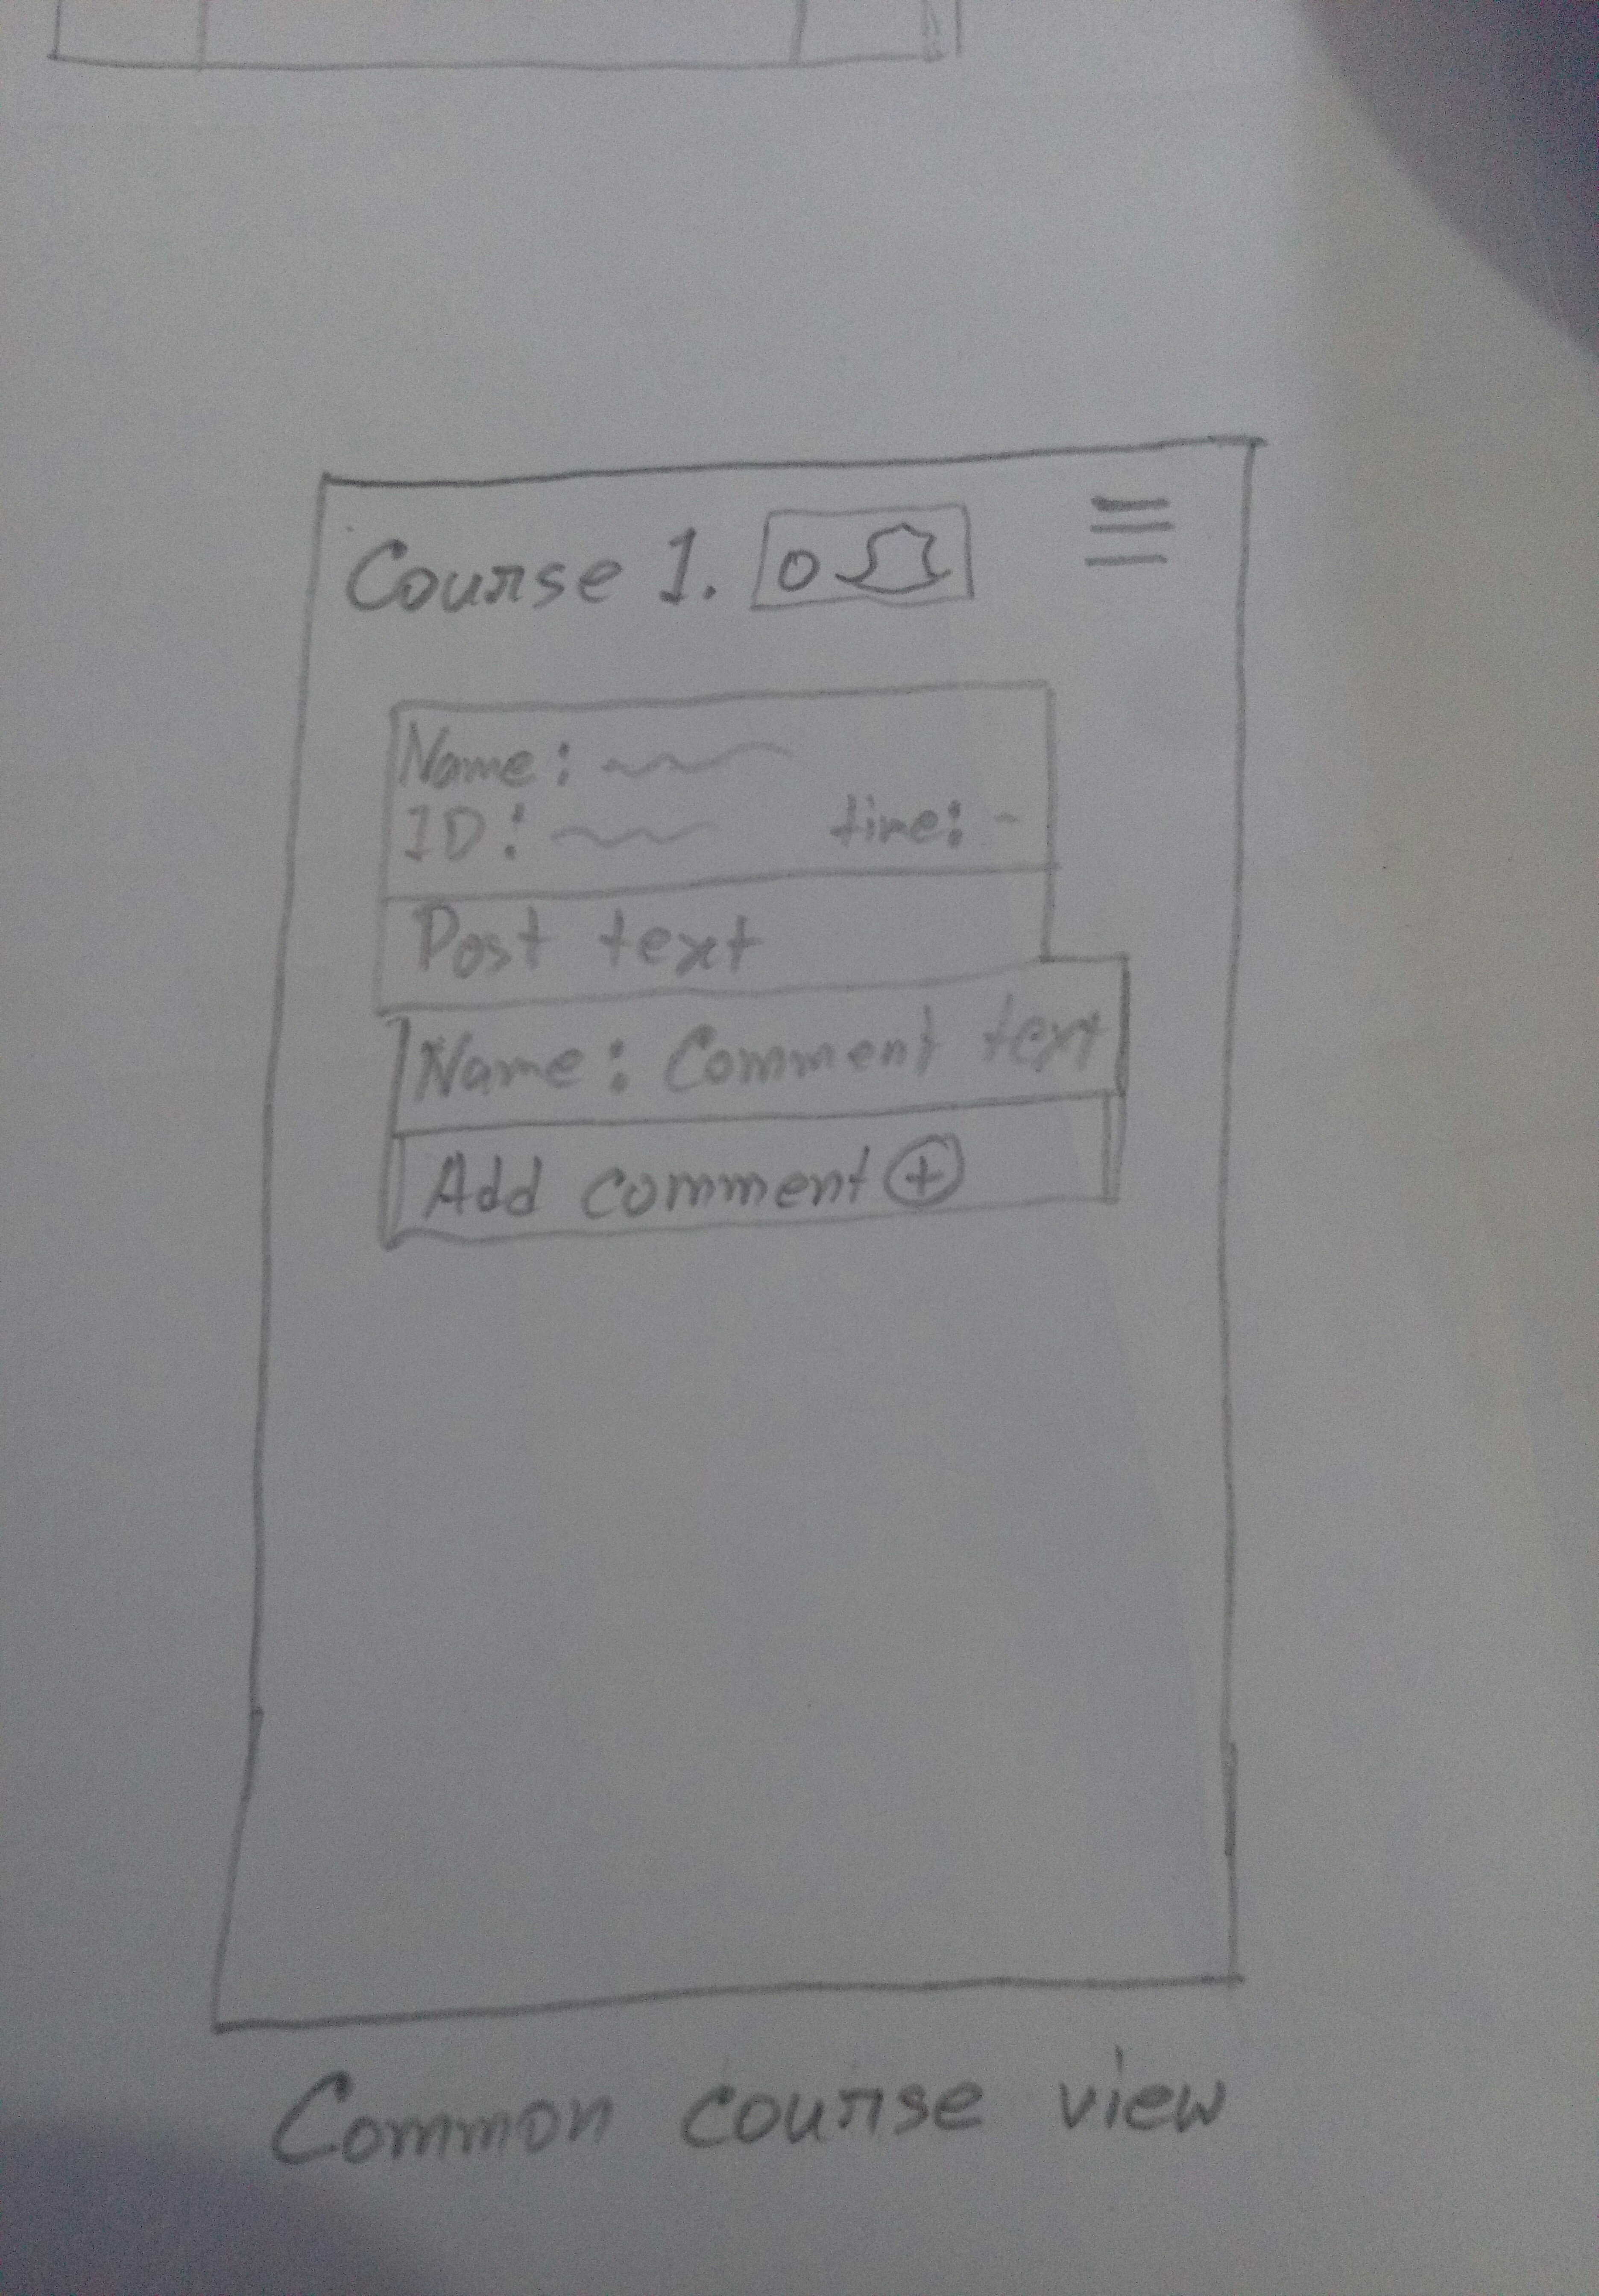 Course 1. 0
Name:
ID: time: -
Post text
Name: Comment text
Add comment +
Common course view